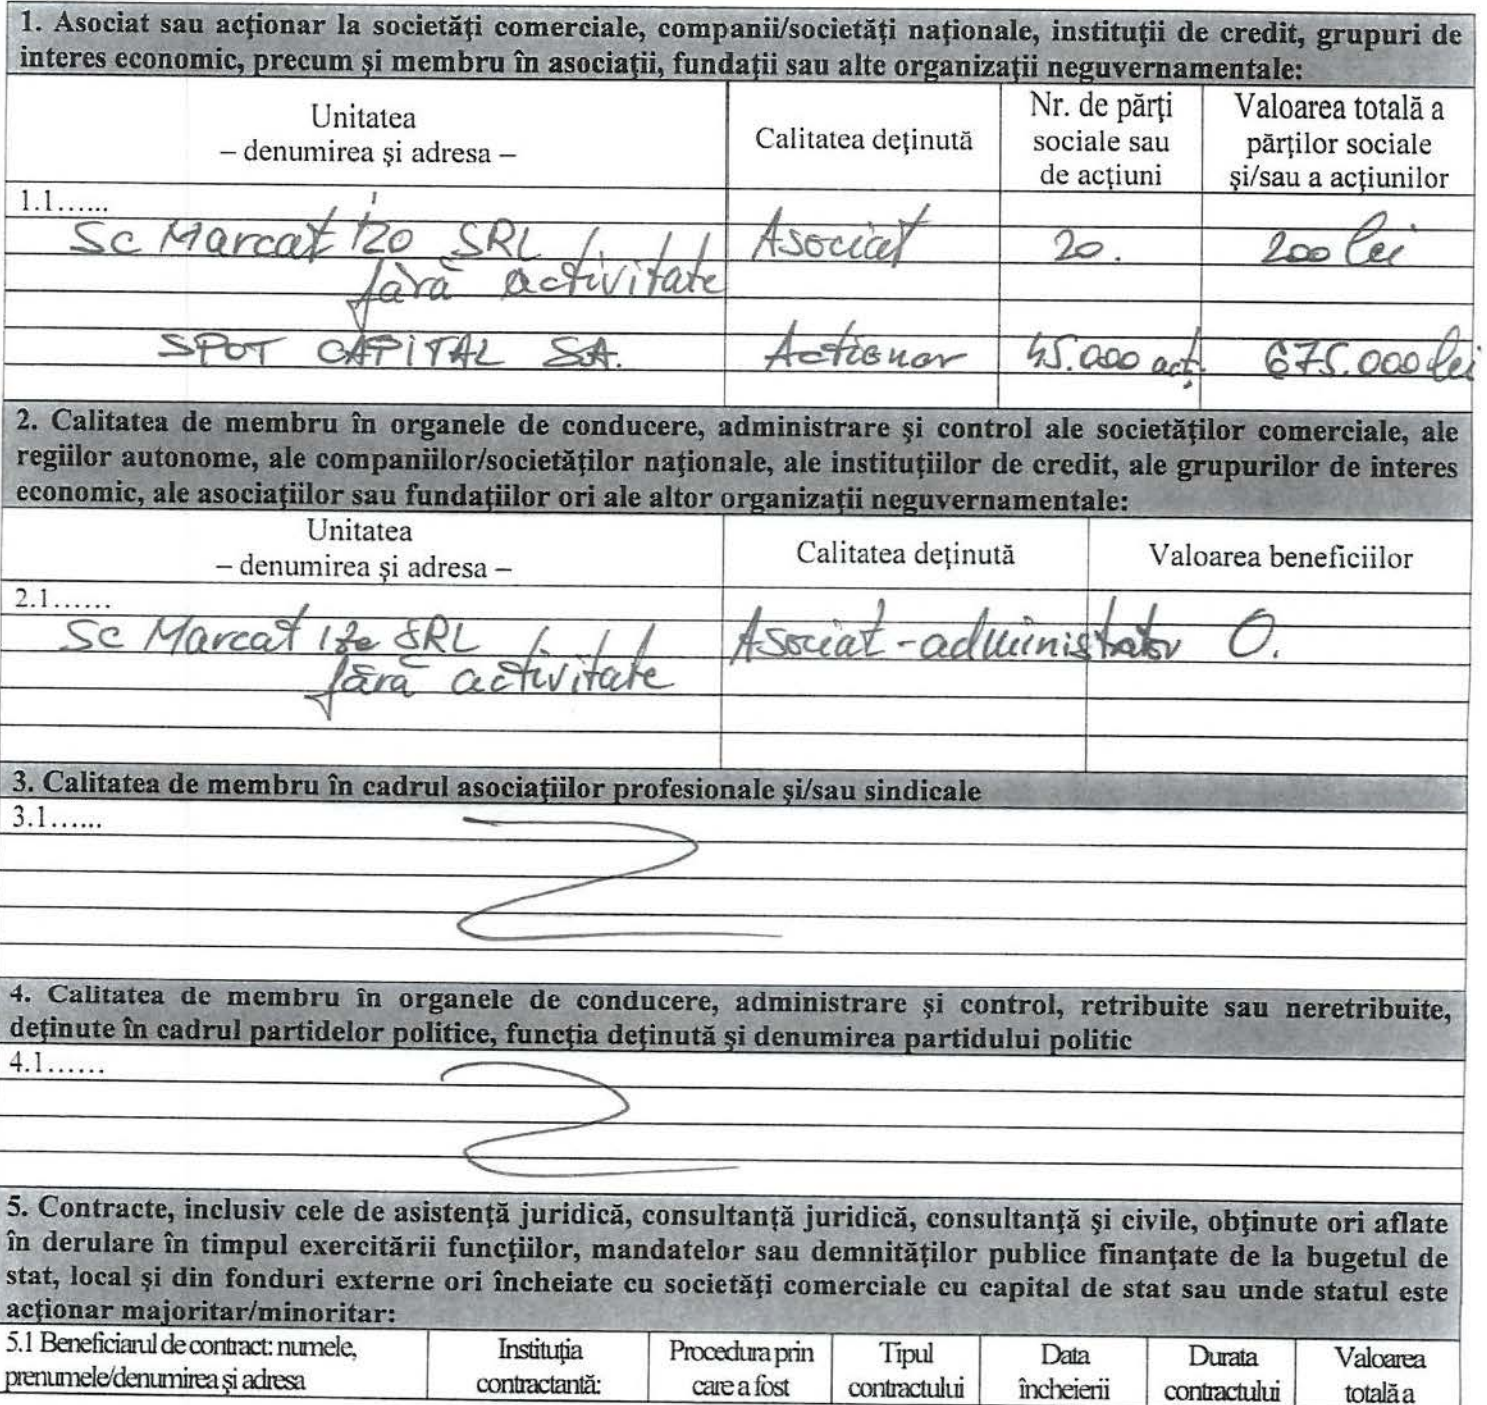 1. Asociat sau acţionar la societăţi comerciale, companii/societăţi naţionale, instituţii de credit, grupuri de
interes economic, precum şi membru în asociaţii, fundaţii sau alte organizaţii neguvernamentale:
Unitatea
– denumirea şi adresa –
Calitatea deţinută
Nr. de părţi
sociale sau
de acţiuni
Valoarea totală a
părţilor sociale
şi/sau a acţiunilor
1.1......
SC Marcat Izo SRL Asociat 20. 200 lei
fără activitate
SPOT CAPITAL SA. Actionar 45.000 acţ. 675.000 lei
2. Calitatea de membru în organele de conducere, administrare şi control ale societăţilor comerciale, ale
regiilor autonome, ale companiilor/societăţilor naţionale, ale instituţiilor de credit, ale grupurilor de interes
economic, ale asociaţiilor sau fundaţiilor ori ale altor organizaţii neguvernamentale:
Unitatea
– denumirea şi adresa –
Calitatea deţinută
Valoarea beneficiilor
2.1......
SC Marcat Izo SRL Asociat-administrator 0.
fără activitate
3. Calitatea de membru în cadrul asociaţiilor profesionale şi/sau sindicale
3.1......
4. Calitatea de membru în organele de conducere, administrare şi control, retribuite sau neretribuite,
deţinute în cadrul partidelor politice, funcţia deţinută şi denumirea partidului politic
4.1......
5. Contracte, inclusiv cele de asistenţă juridică, consultanţă juridică, consultanţă şi civile, obţinute ori aflate
în derulare în timpul exercitării funcţiilor, mandatelor sau demnităţilor publice finanţate de la bugetul de
stat, local şi din fonduri externe ori încheiate cu societăţi comerciale cu capital de stat sau unde statul este
acţionar majoritar/minoritar:
5.1 Beneficiarul de contract: numele,
prenumele/denumirea şi adresa
Instituţia
contractantă:
Procedura prin
care a fost
Tipul
contractului
Data
încheierii
Durata
contractului
Valoarea
totală a